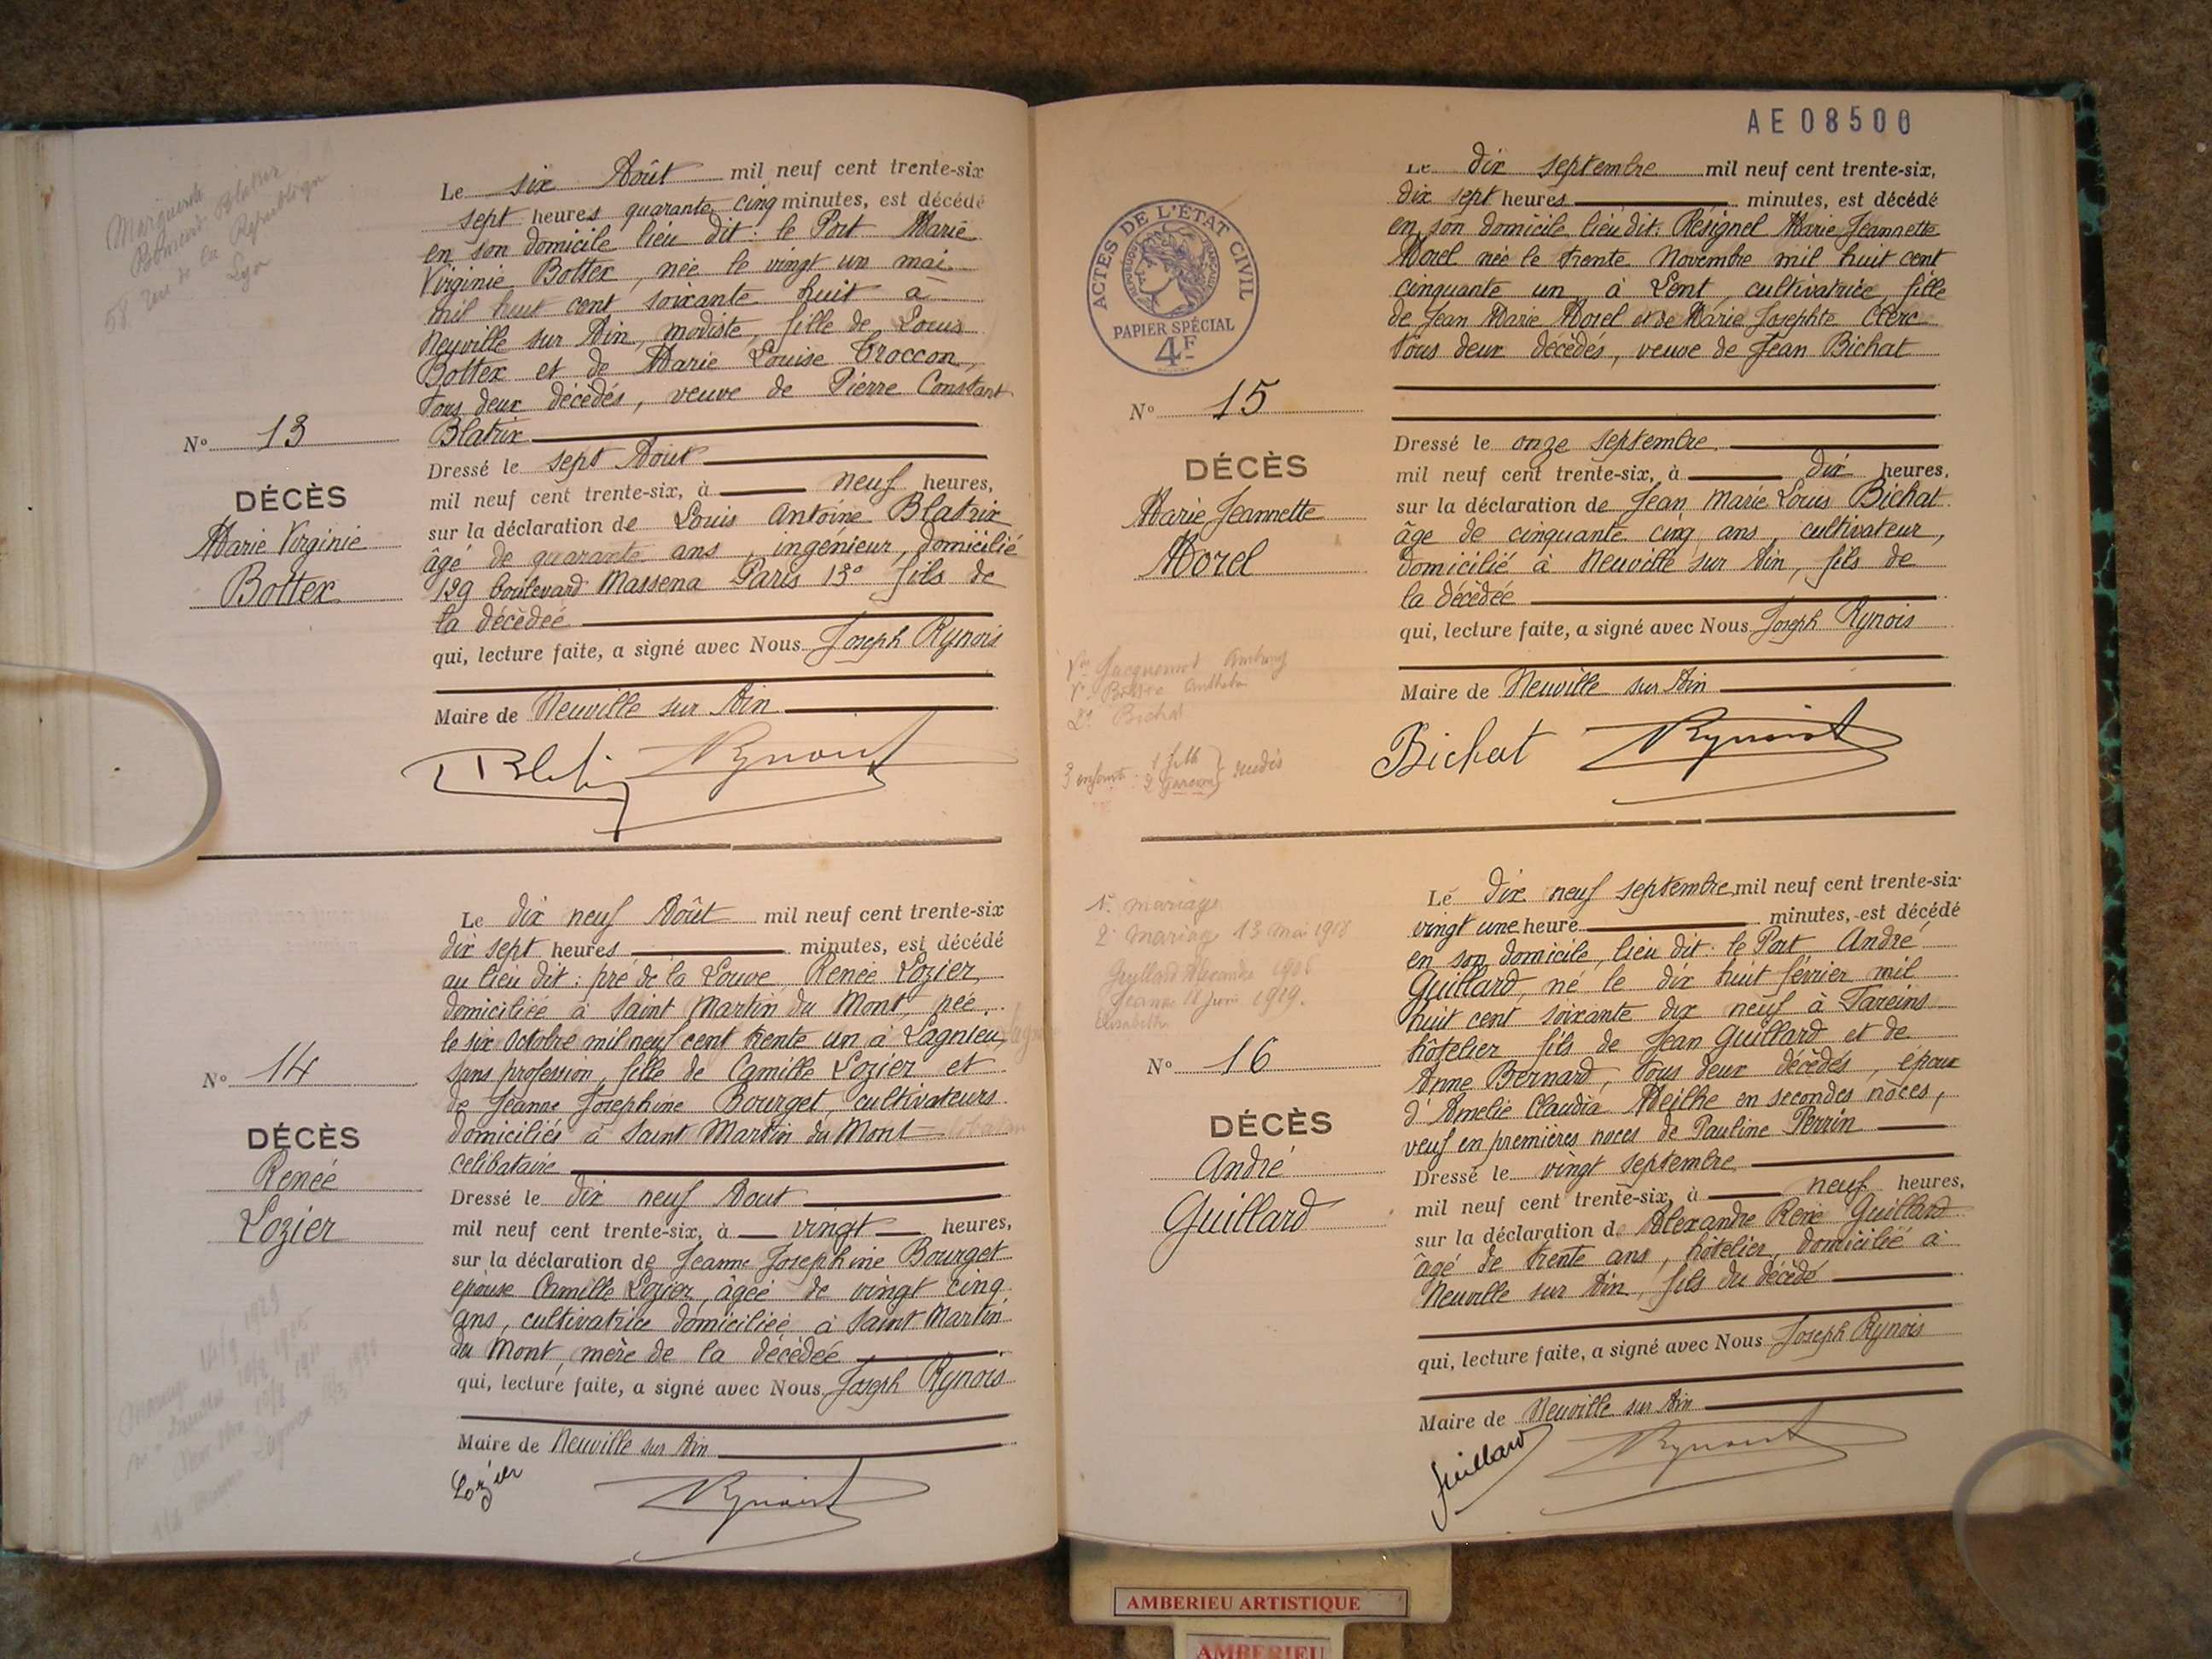 Marguerite
Blatrix
58 rue de la République
Lyon
Le six Août mil neuf cent trente-six
sept heures quarante cinq minutes, est décédé
en son domicile lieu dit : le Port Marie
Virginie Bottex, née le vingt un mai
mil huit cent soixante huit à
Neuville sur Ain, modiste, fille de Louis
Bottex et de Marie Louise Troccon,
tous deux décédés, veuve de Pierre Constant
Blatrix
N° 13
DÉCÈS
Marie Virginie
Bottex
Dressé le sept Août
mil neuf cent trente-six, à neuf heures,
sur la déclaration de Louis Antoine Blatrix
âgé de quarante ans, ingénieur, domicilié
129 boulevard Massena Paris 13e fils de
la décédée
qui, lecture faite, a signé avec Nous Joseph Rynois
Maire de Neuville sur Ain
Le dix neuf Août mil neuf cent trente-six
dix sept heures minutes, est décédé
au lieu dit : pré de la Louve Renée Lozier
domiciliée à Saint Martin du Mont, née
le six Octobre mil neuf cent trente un à Lagnieu,
sans profession, fille de Camille Lozier et
de Jeanne Josephine Bourget, cultivateurs
domiciliés à Saint Martin du Mont
célibataire
N° 14
DÉCÈS
Renée
Lozier
Dressé le dix neuf Aout
mil neuf cent trente-six, à vingt heures,
sur la déclaration de Jeanne Josephine Bourget
épouse Camille Lozier, âgée de vingt cinq
ans, cultivatrice domiciliée à Saint Martin
du Mont, mère de la décédée
qui, lecture faite, a signé avec Nous Joseph Rynois
Maire de Neuville sur Ain
Lozier
AE 08500
ACTES DE L'ÉTAT CIVIL
PAPIER SPÉCIAL
4F
Le dix septembre mil neuf cent trente-six,
dix sept heures minutes, est décédé
en son domicile lieu dit : Résignel Marie Jeannette
Morel née le trente Novembre mil huit cent
cinquante un à Lent, cultivatrice, fille
de Jean Marie Morel et de Marie Josephte Clerc
tous deux décédés, veuve de Jean Bichat
N° 15
DÉCÈS
Marie Jeannette
Morel
Dressé le onze septembre
mil neuf cent trente-six, à dix heures,
sur la déclaration de Jean Marie Louis Bichat
âgé de cinquante cinq ans, cultivateur,
domicilié à Neuville sur Ain, fils de
la décédée
qui, lecture faite, a signé avec Nous Joseph Rynois
Maire de Neuville sur Ain
Bichat Rynois
Jacquemot
Bichat
3 enfants
1 fille
2 garçons
1° mariage
2° mariage 13 mai 1918
Guillard Alexandre 1906
Jeanne 1919.
Elisabeth
Le dix neuf septembre mil neuf cent trente-six
vingt une heure minutes, est décédé
en son domicile, lieu dit : le Port André
Guillard, né le dix huit février mil
huit cent soixante dix neuf à Fareins
hôtelier fils de Jean Guillard et de
Anne Bernard, tous deux décédés, époux
d'Amélie Claudia Meilhe en secondes noces,
veuf en premières noces de Pauline Perrin
N° 16
DÉCÈS
André
Guillard
Dressé le vingt septembre
mil neuf cent trente-six, à neuf heures,
sur la déclaration de Alexandre René Guillard
âgé de trente ans, hôtelier, domicilié à
Neuville sur Ain, fils du décédé
qui, lecture faite, a signé avec Nous Joseph Rynois
Maire de Neuville sur Ain
Guillard
AMBERIEU ARTISTIQUE
AMBERIEU